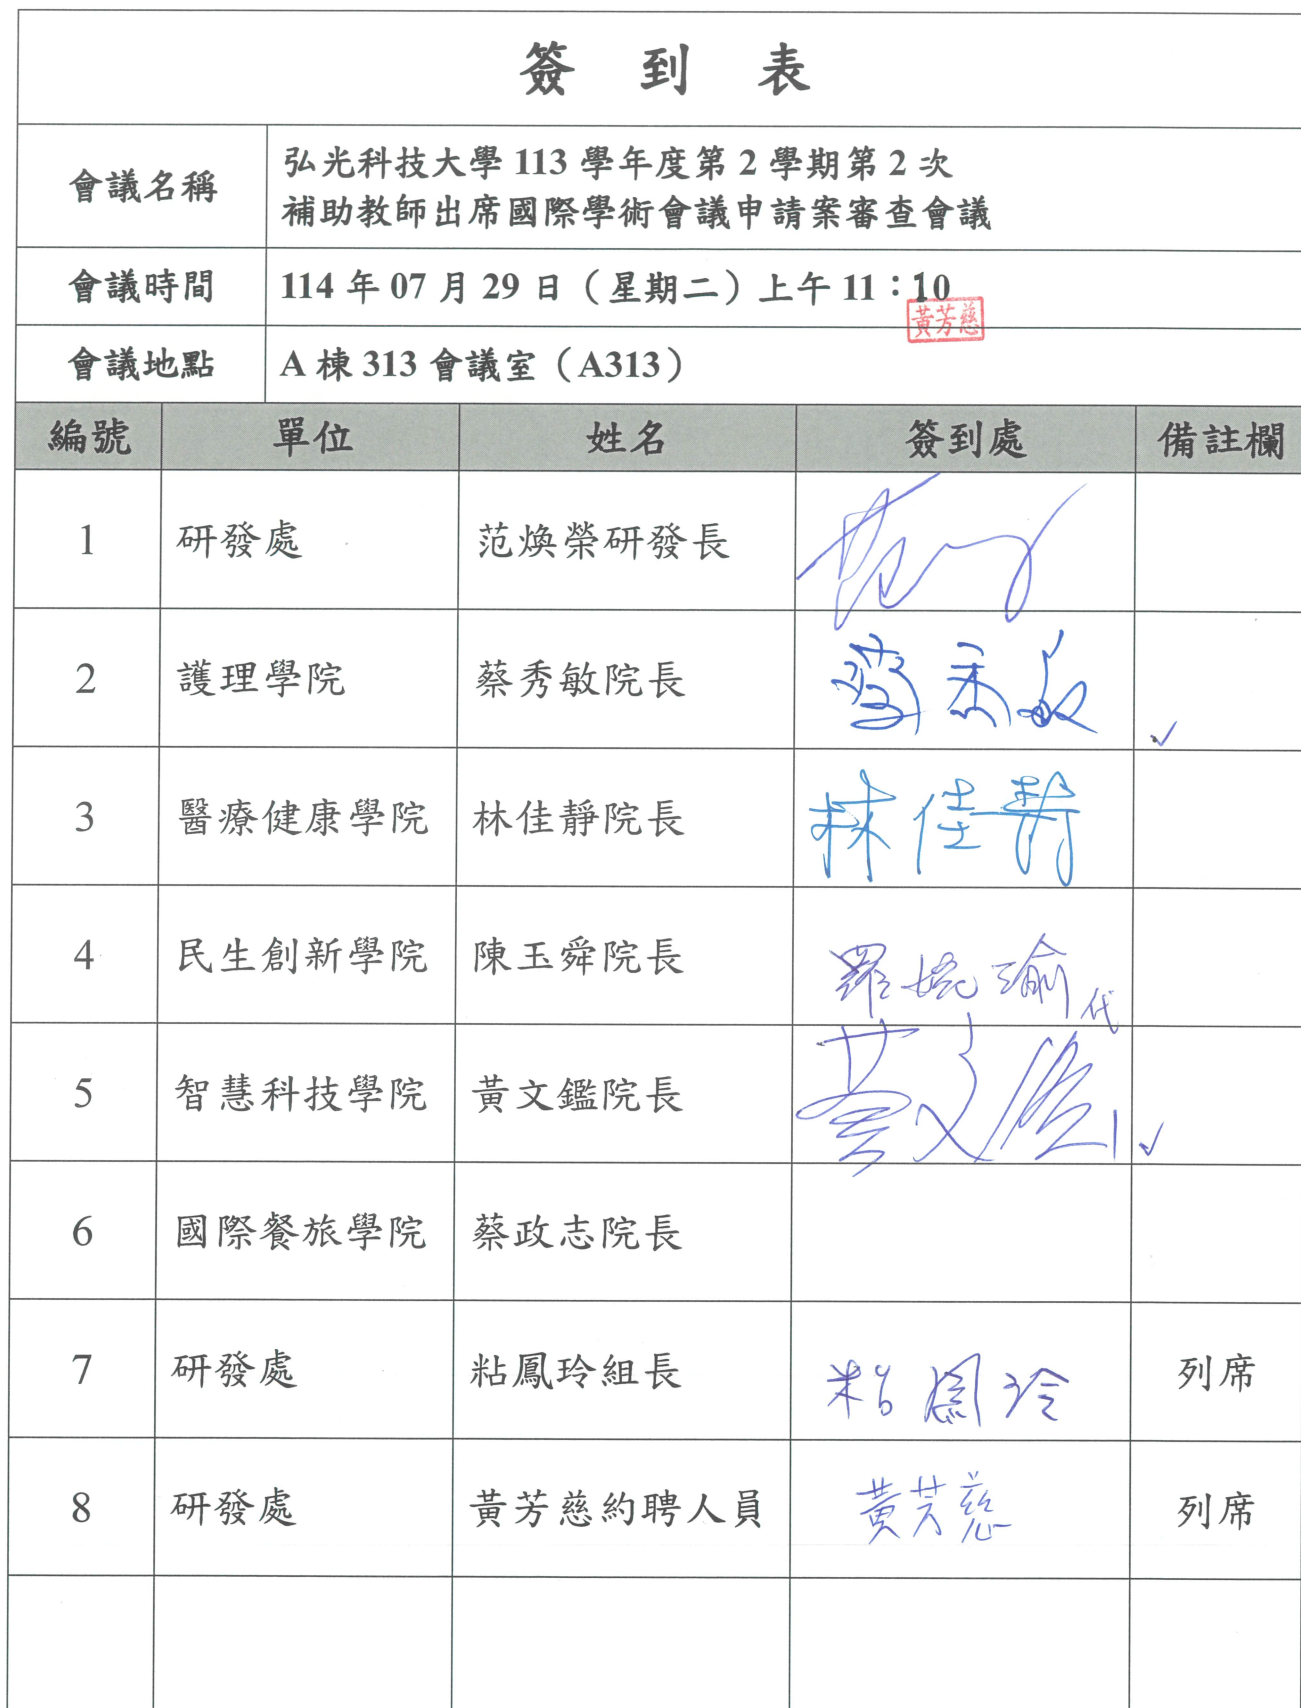 簽 到 表
會議名稱
弘光科技大學 113 學年度第 2 學期第 2 次
補助教師出席國際學術會議申請案審查會議
會議時間
114 年 07 月 29 日（星期二）上午 11：10
黃芳慈
會議地點
A 棟 313 會議室（A313）
編號 單位 姓名 簽到處 備註欄
1 研發處 范煥榮研發長
2 護理學院 蔡秀敏院長 蔡秀敏 ✓
3 醫療健康學院 林佳靜院長 林佳靜
4 民生創新學院 陳玉舜院長 羅婉瑜代
5 智慧科技學院 黃文鑑院長 黃文鑑 ✓
6 國際餐旅學院 蔡政志院長
7 研發處 粘鳳玲組長 粘鳳玲 列席
8 研發處 黃芳慈約聘人員 黃芳慈 列席